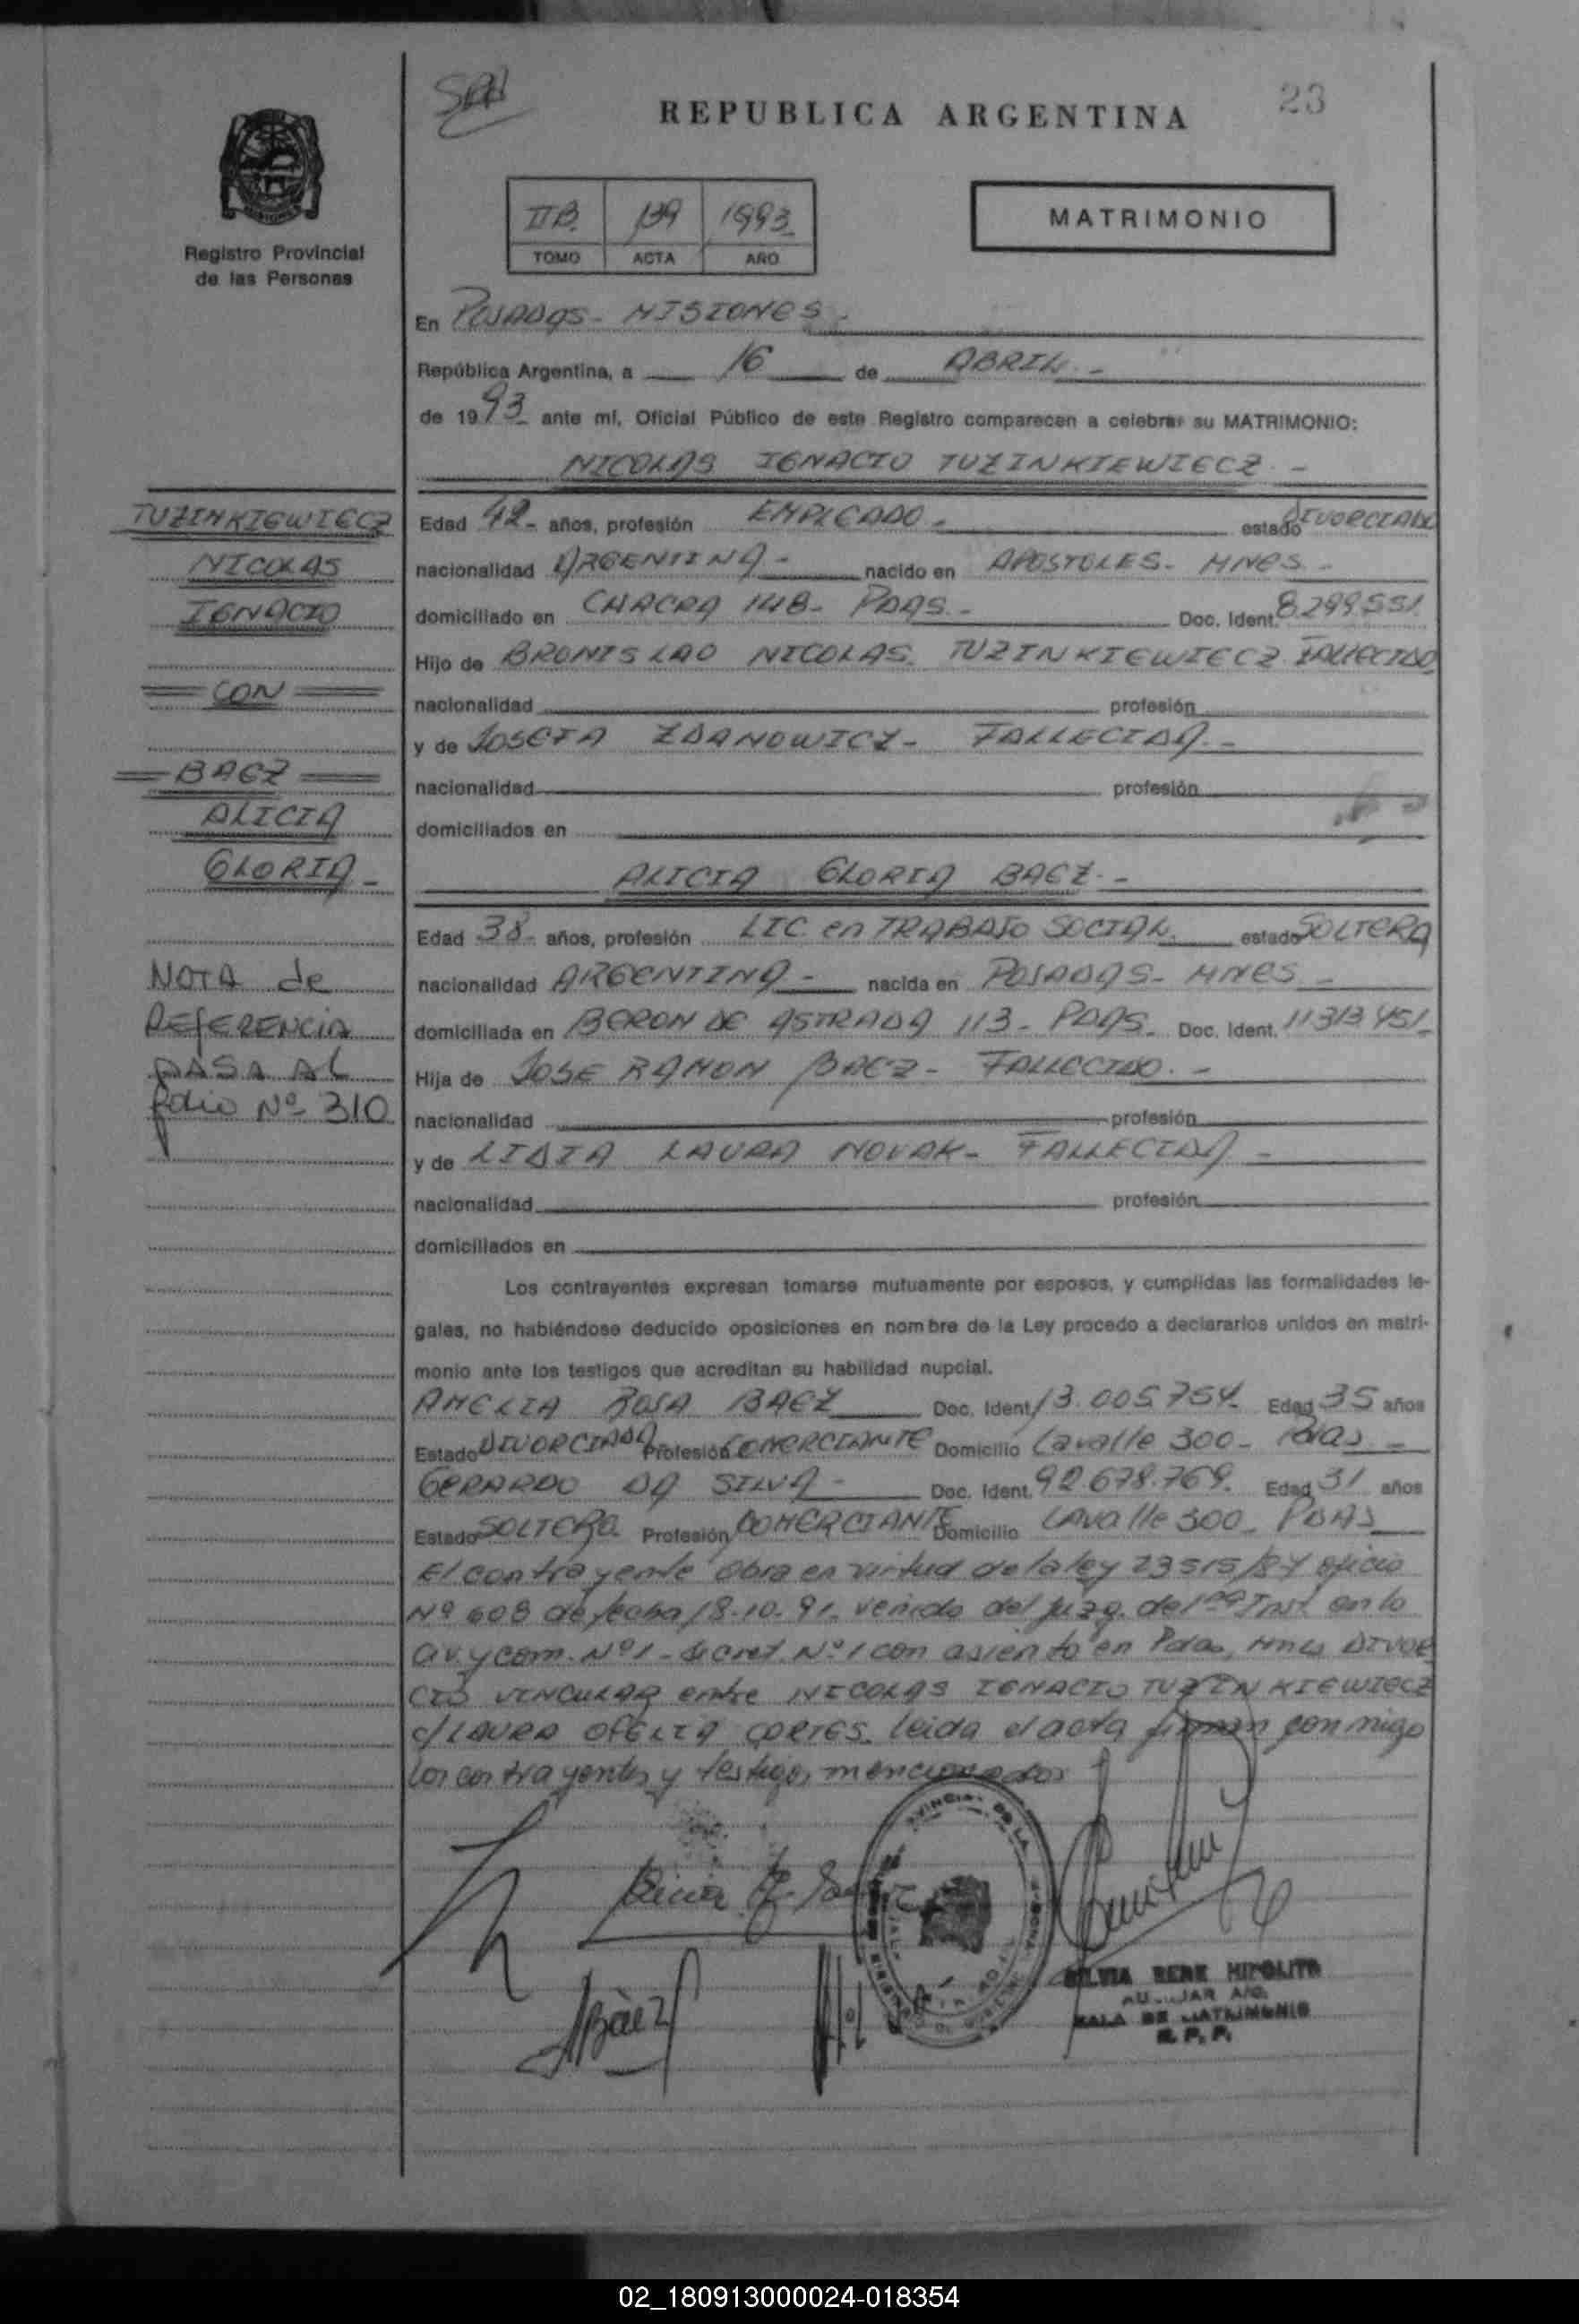 23
REPUBLICA ARGENTINA
MATRIMONIO
IIB 139 1993
TOMO ACTA AÑO
Registro Provincial
de las Personas
En POSADAS - MISIONES -
República Argentina, a 16 de ABRIL. -
de 1993 ante mí, Oficial Público de este Registro comparecen a celebrar su MATRIMONIO:
NICOLAS IGNACIO TUZINKIEWIECZ. -
TUZINKIEWIECZ
NICOLAS
IGNACIO
CON
BAEZ
ALICIA
GLORIA -
NOTA de
REFERENCIA
PASA AL
folio Nº 310
Edad 42 - años, profesión EMPLEADO - estado DIVORCIADO
nacionalidad ARGENTINA - nacido en APOSTOLES - MNES. -
domiciliado en CHACRA 148 - PDAS. - Doc. Ident. 8.299.551
Hijo de BRONISLAO NICOLAS TUZINKIEWIECZ FALLECIDO
nacionalidad profesión
y de JOSEFA ZDANOWICZ - FALLECIDA. -
nacionalidad profesión
domiciliados en
ALICIA GLORIA BAEZ. -
Edad 38 - años, profesión LIC en TRABAJO SOCIAL. estado SOLTERA
nacionalidad ARGENTINA - nacida en POSADAS - MNES -
domiciliada en BERON DE ASTRADA 113 - PDAS. Doc. Ident. 11313451
Hija de JOSE RAMON BAEZ - FALLECIDO. -
nacionalidad profesión
y de LIDIA LAURA NOVAK - FALLECIDA -
nacionalidad profesión
domiciliados en
Los contrayentes expresan tomarse mutuamente por esposos, y cumplidas las formalidades le-
gales, no habiéndose deducido oposiciones en nombre de la Ley procedo a declararlos unidos en matri-
monio ante los testigos que acreditan su habilidad nupcial.
AMELIA ROSA BAEZ Doc. Ident. 13.005.754 Edad 35 años
Estado DIVORCIADA Profesión COMERCIANTE Domicilio Lavalle 300 - Pdas -
GERARDO DA SILVA - Doc. Ident. 92.678.769. Edad 31 años
Estado SOLTERO. Profesión COMERCIANTE Domicilio Lavalle 300 - PDAS
El contrayente obra en virtud de la ley 23515/87 oficio
Nº 608 de fecha 18-10-91 venido del juzg. de 1ra Inst en lo
civ. y com. Nº 1 - Secret. Nº 1 con asiento en Pdas, Mnes DIVOR
CIO VINCULAR entre NICOLAS IGNACIO TUZINKIEWIECZ
c/ LAURA OFELIA CORTES. Leida el acta firman conmigo
los contrayentes y testigos mencionados
ABaez
SILVIA RENE HIPOLITO
SALA DE MATRIMONIO
R. P. P.
02_180913000024-018354